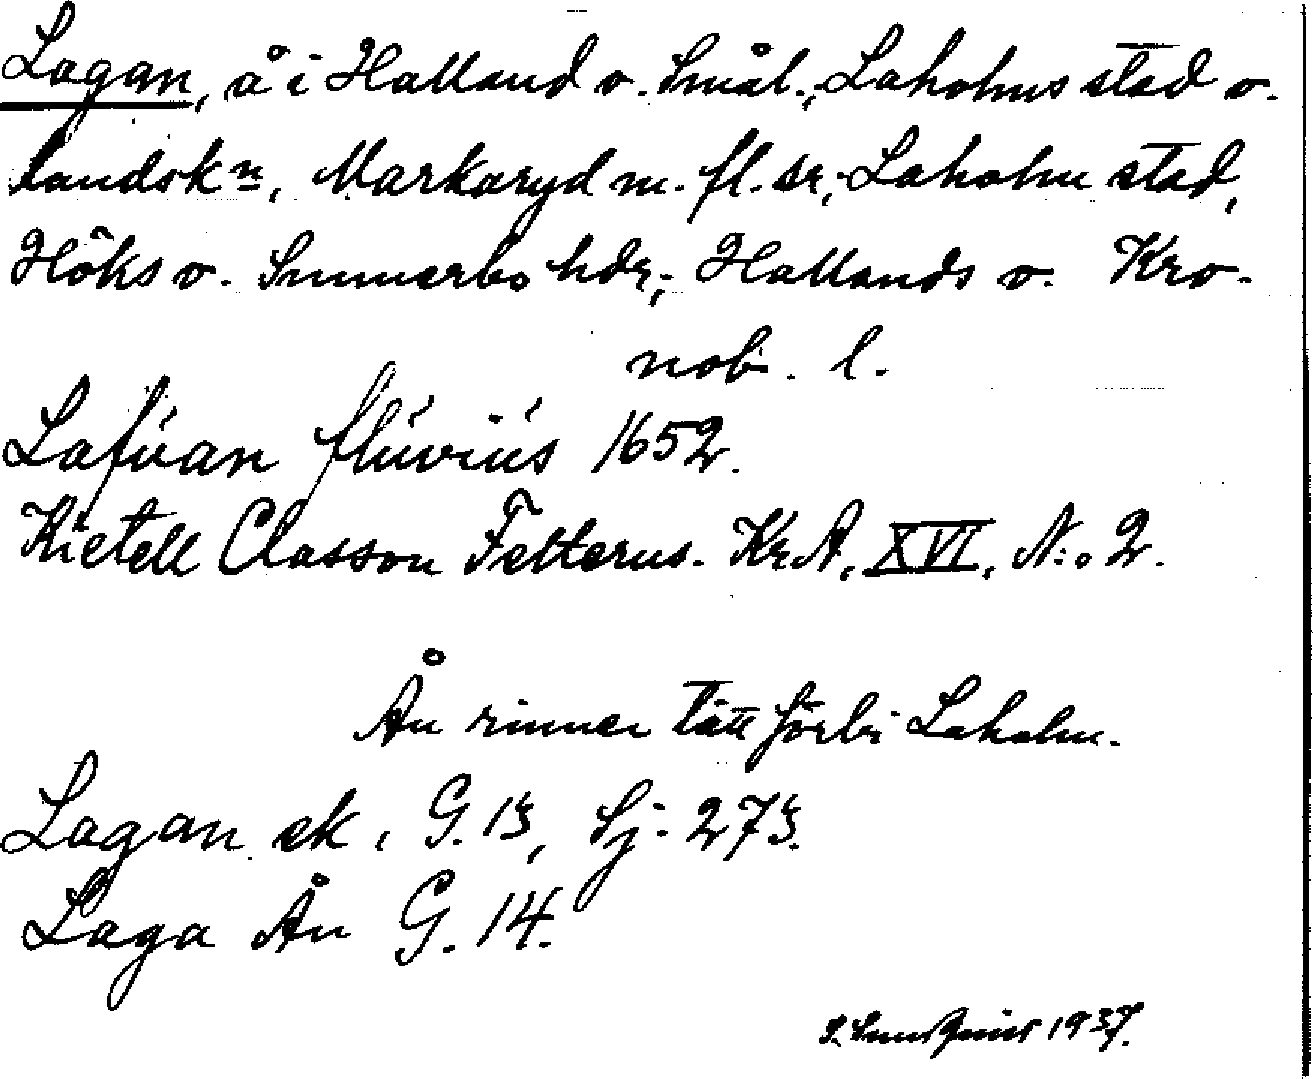 Lagan, å i Halland o. Smål., Laholms stad o.
landskn, Markaryd m. fl. sr, Laholm stad,
Höks o. Sunnerbo hdr, Hallands o. Kro-
nob. l.
Lafúan flúviús 1652.
Kietell Classon Felterus. KrA, XVI, N:o 2.
Ån rinner tätt förbi Laholm.
Lagan ek, G. 13, Sj. 273.
Laga Ån G. 14.
S. Sundquist 1937.